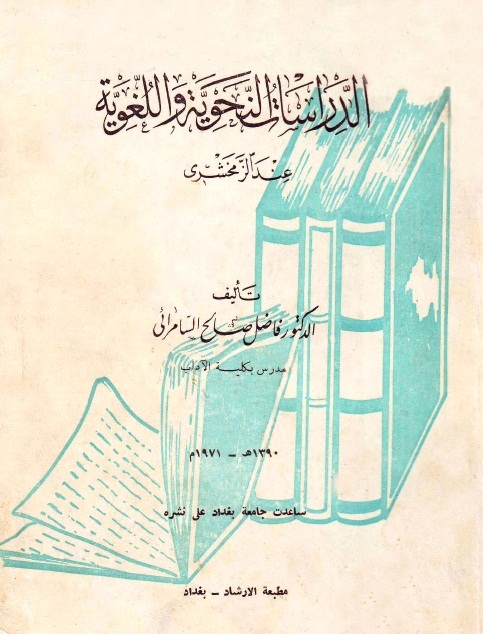 الدِّرَاسَاتُ النَّحْوِيَّة وَاللُّغَوِيَّة
عِندَ الزَّمَخْشَرِى
تأليف
الدكتور فاضل صالح السامرائى
مدرس بكلية الآداب
١٣٩٠هـ - ١٩٧١م
ساعدت جامعة بغداد على نشره
مطبعة الارشاد - بغداد